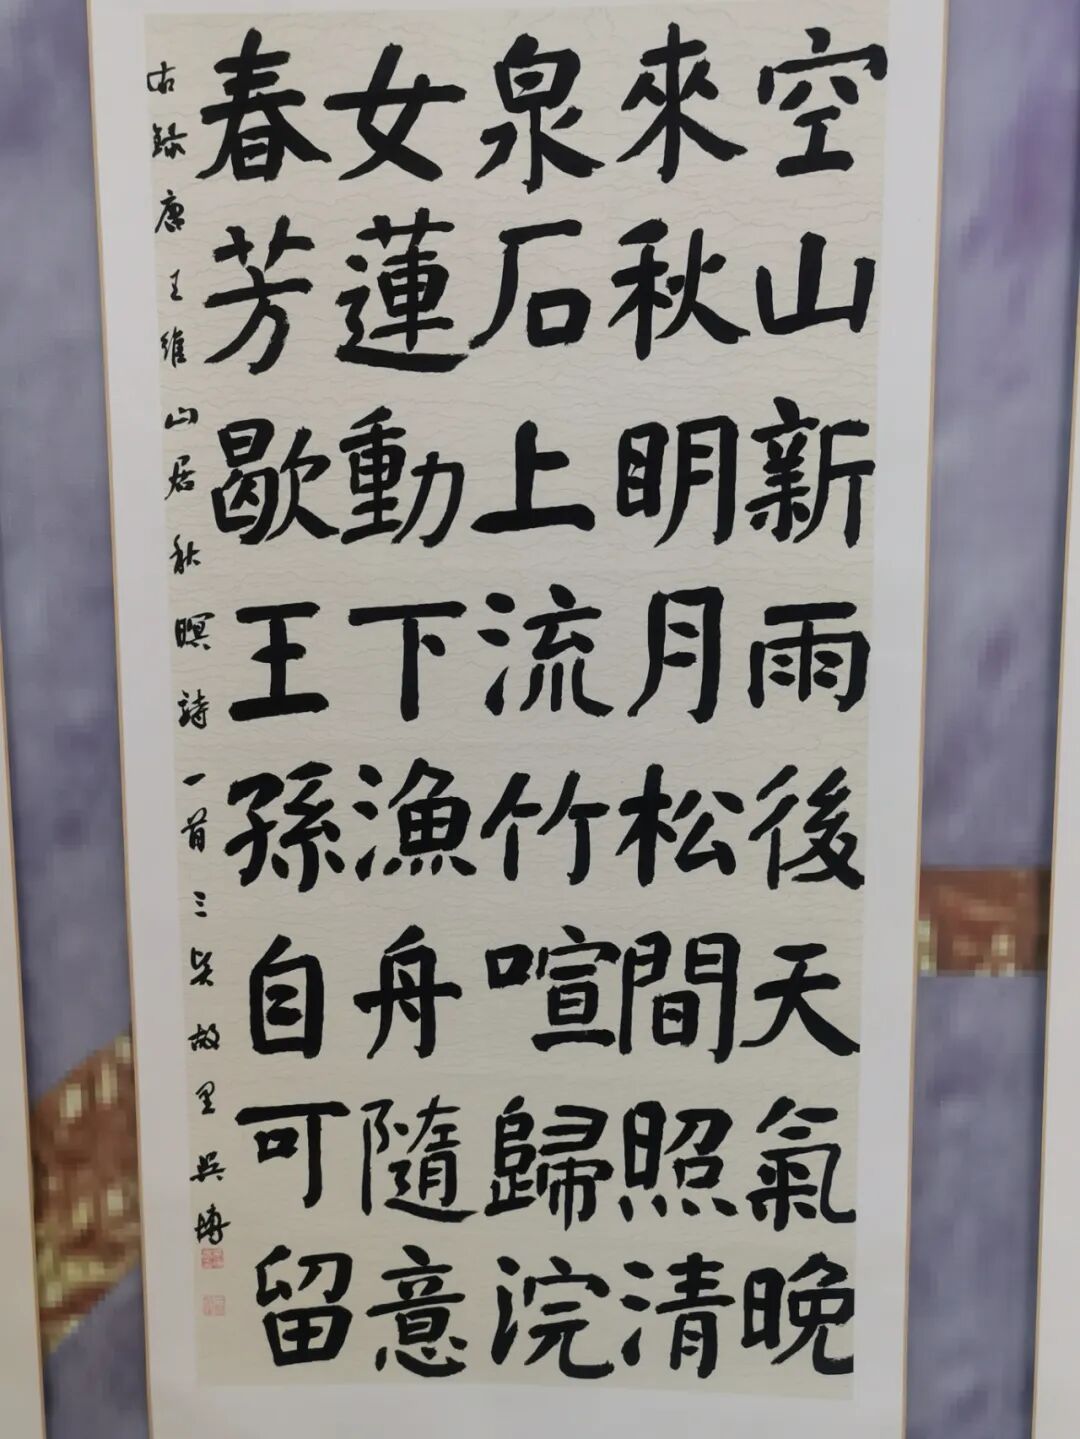 空山新雨後天氣晚
來秋明月松間照清
泉石上流竹喧歸浣
女蓮動下漁舟隨意
春芳歇王孫自可留
右錄唐王維山居秋暝詩一首三吳故里吳博